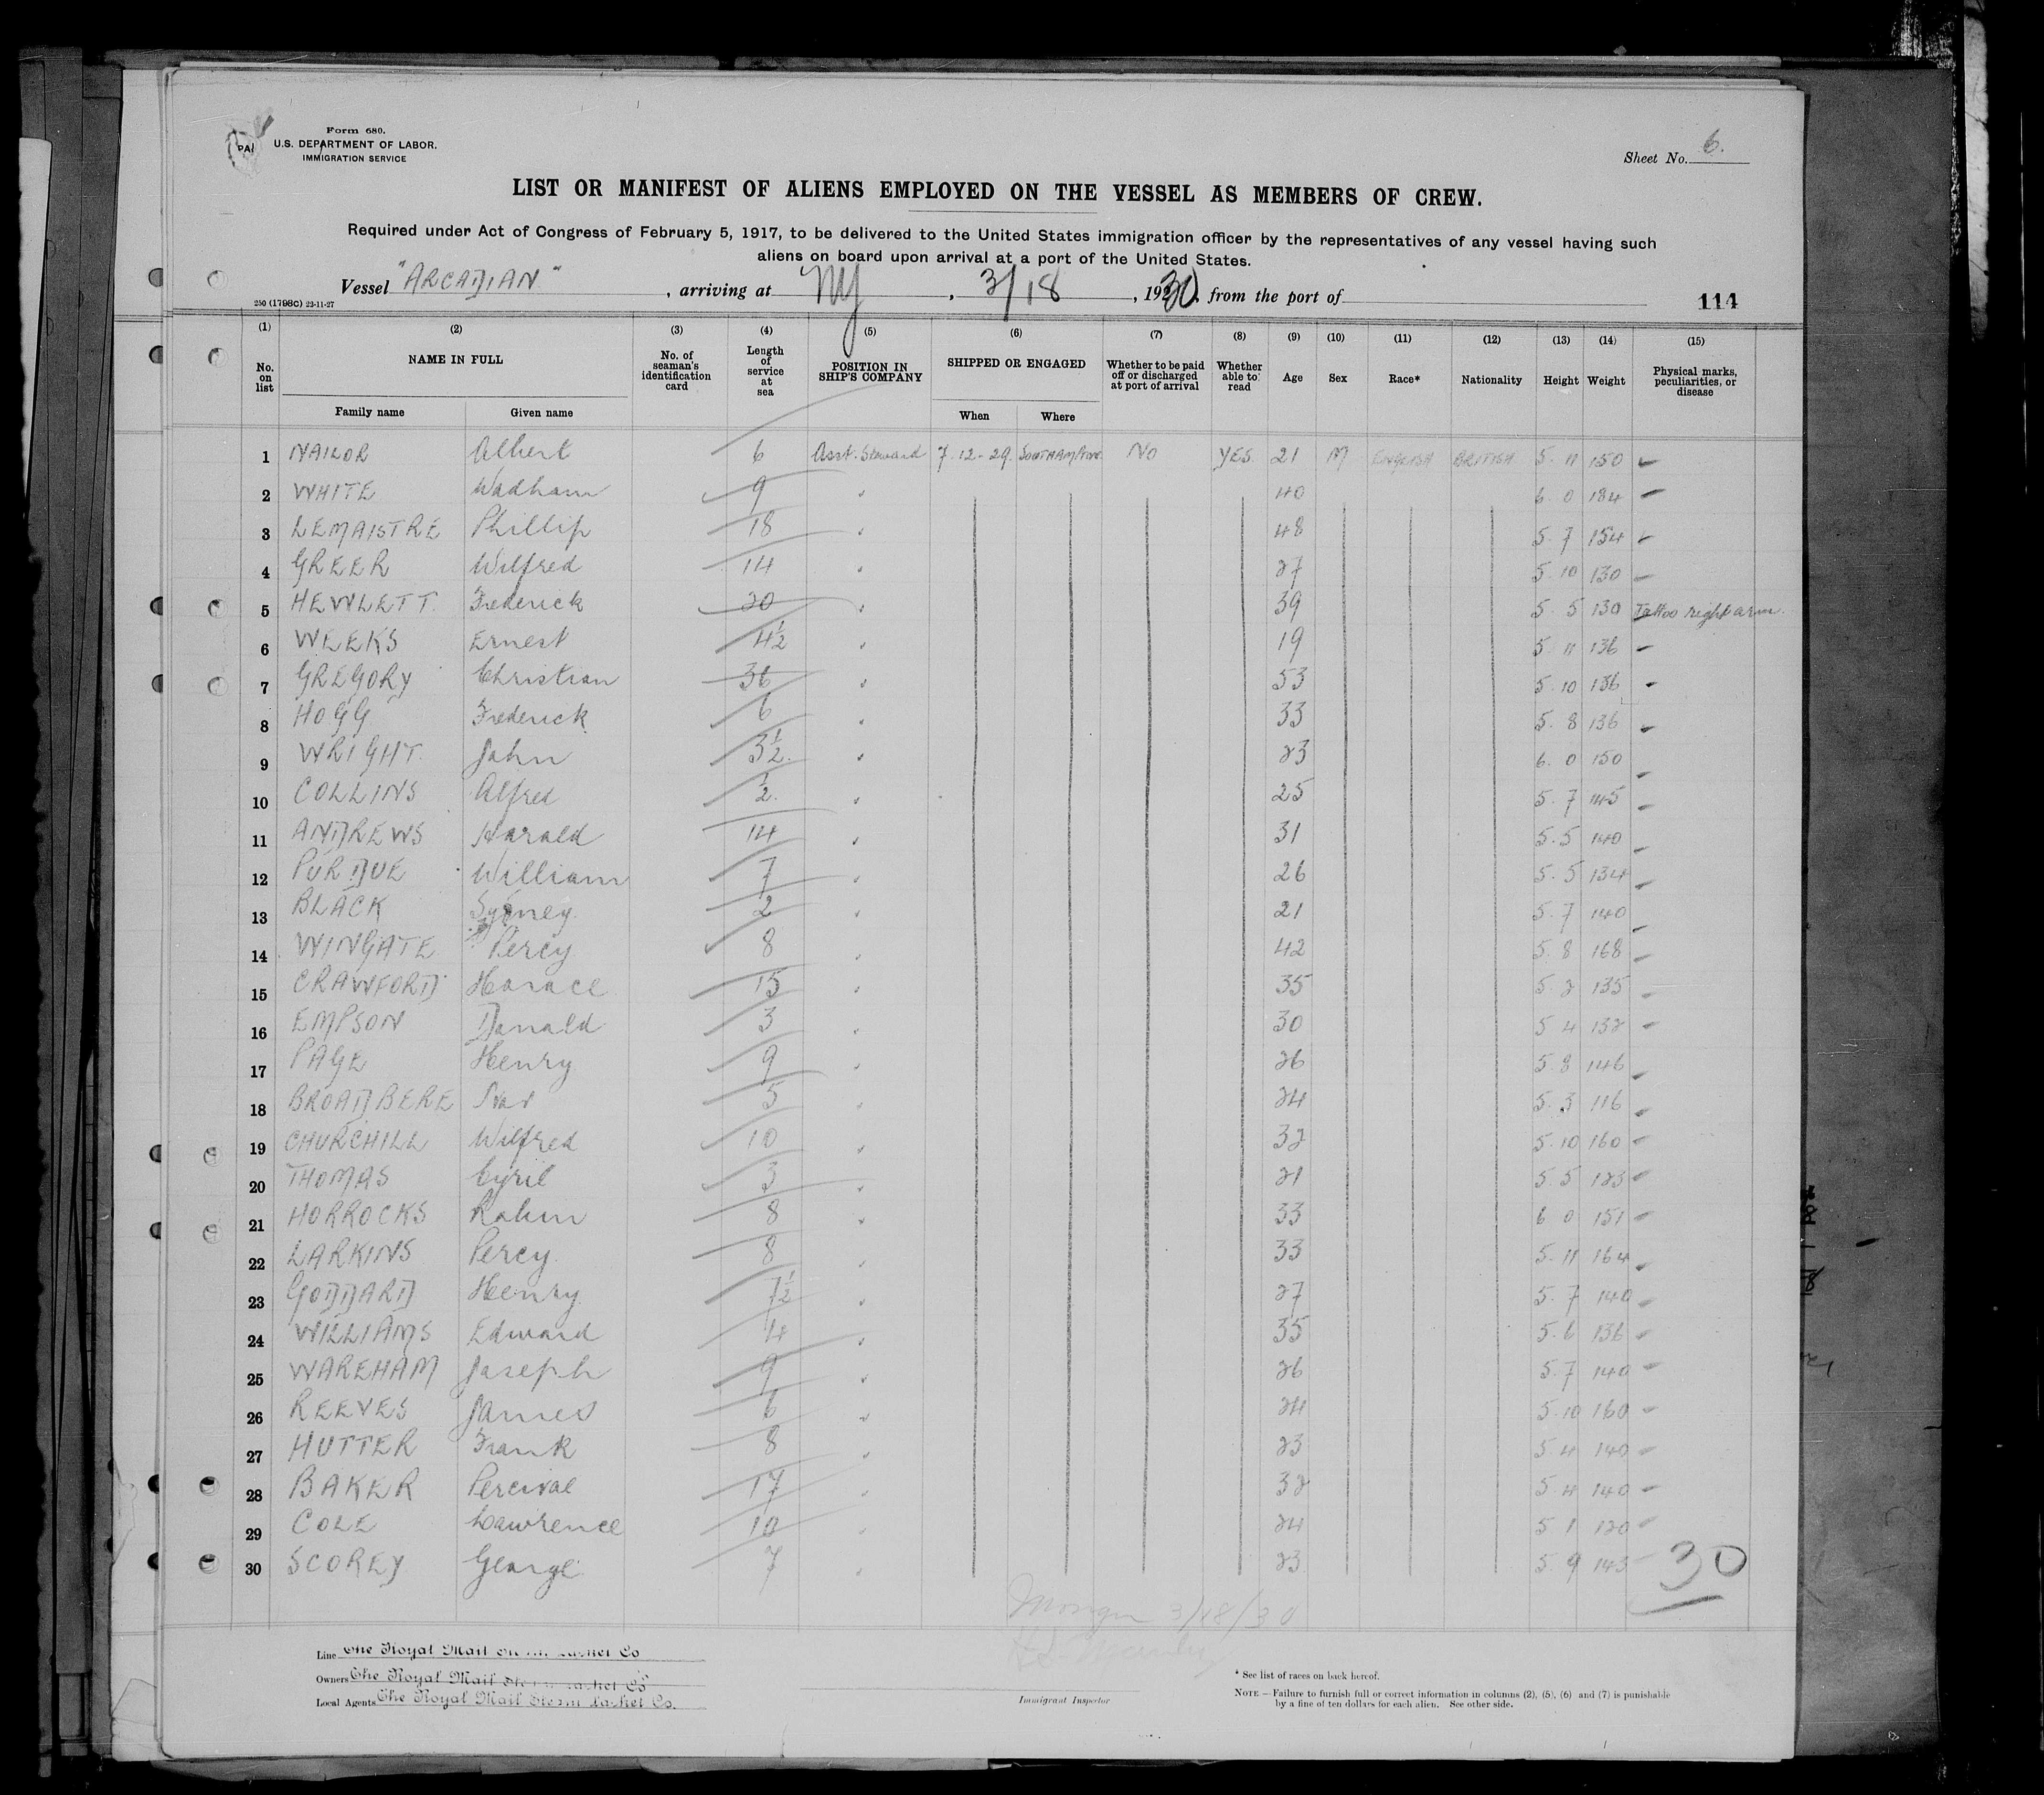 Form 680.
U.S. DEPARTMENT OF LABOR.
IMMIGRATION SERVICE
Sheet No. 6.
LIST OR MANIFEST OF ALIENS EMPLOYED ON THE VESSEL AS MEMBERS OF CREW.
Required under Act of Congress of February 5, 1917, to be delivered to the United States immigration officer by the representatives of any vessel having such
aliens on board upon arrival at a port of the United States.
Vessel "ARCADIAN", arriving at NY, 3/18, 1930, from the port of
250 (1798C) 22-11-27
114
(1) (2) (3) (4) (5) (6) (7) (8) (9) (10) (11) (12) (13) (14) (15)
No. on list NAME IN FULL No. of seaman's identification card Length of service at sea POSITION IN SHIP'S COMPANY SHIPPED OR ENGAGED Whether to be paid off or discharged at port of arrival Whether able to read Age Sex Race* Nationality Height Weight Physical marks, peculiarities, or disease
Family name Given name When Where
1 NAILOR Albert 6 Asst. Steward 7-12-29. SOUTHAMPTON NO YES. 21 M ENGLISH BRITISH 5. 11 150
2 WHITE Wadham 9 40 6. 0 184
3 LEMAISTRE Phillip 18 48 5. 7 154
4 GREER Wilfred 14 27 5. 10 130
5 HEWLETT. Frederick 20 39 5. 5 130 Tattoo right arm.
6 WEEKS Ernest 4½ 19 5. 11 136
7 GREGORY Christian 36 53 5. 10 136
8 HOGG Frederick 6 33 5. 8 136
9 WRIGHT. John 3½. 23 6. 0 150
10 COLLINS Alfred ½. 25 5. 7 145
11 ANDREWS Harald 14 31 5. 5 140
12 PURDUE William 7 26 5. 5 134
13 BLACK Sydney. 2 21 5. 7 140
14 WINGATE Percy 8 42 5. 8 168
15 CRAWFORD Horace 15 35 5. 2 135
16 EMPSON Donald 3 30 5 4 132
17 PAGE Henry 9 26 5. 8 146
18 BROADBERE Ivor 5 24 5. 3 116
19 CHURCHILL Wilfred 10 32 5. 10 160
20 THOMAS Cyril 3 21 5 5 123
21 HORROCKS 8 33 6 0 151
22 LARKINS Percy 8 33 5. 11 164
23 GODDARD Henry 7½ 27 5. 7 140
24 WILLIAMS Edward 35 5. 6 136
25 WAREHAM Joseph 9 26 5. 7 140
26 REEVES James 6 24 5. 10 160
27 HUTTER Frank 8 23 5. 4 140
28 BAKER Percival 17 32 5. 4 140
29 COLE Lawrence 10 24 5 1 120
30 SCOREY George 7 23 5. 9 143
30
3/18/30
Line The Royal Mail Steam Packet Co
Owners The Royal Mail Steam Packet Co
Local Agents The Royal Mail Steam Packet Co.
Immigrant Inspector
* See list of races on back hereof.
NOTE.—Failure to furnish full or correct information in columns (2), (5), (6) and (7) is punishable
by a fine of ten dollars for each alien. See other side.